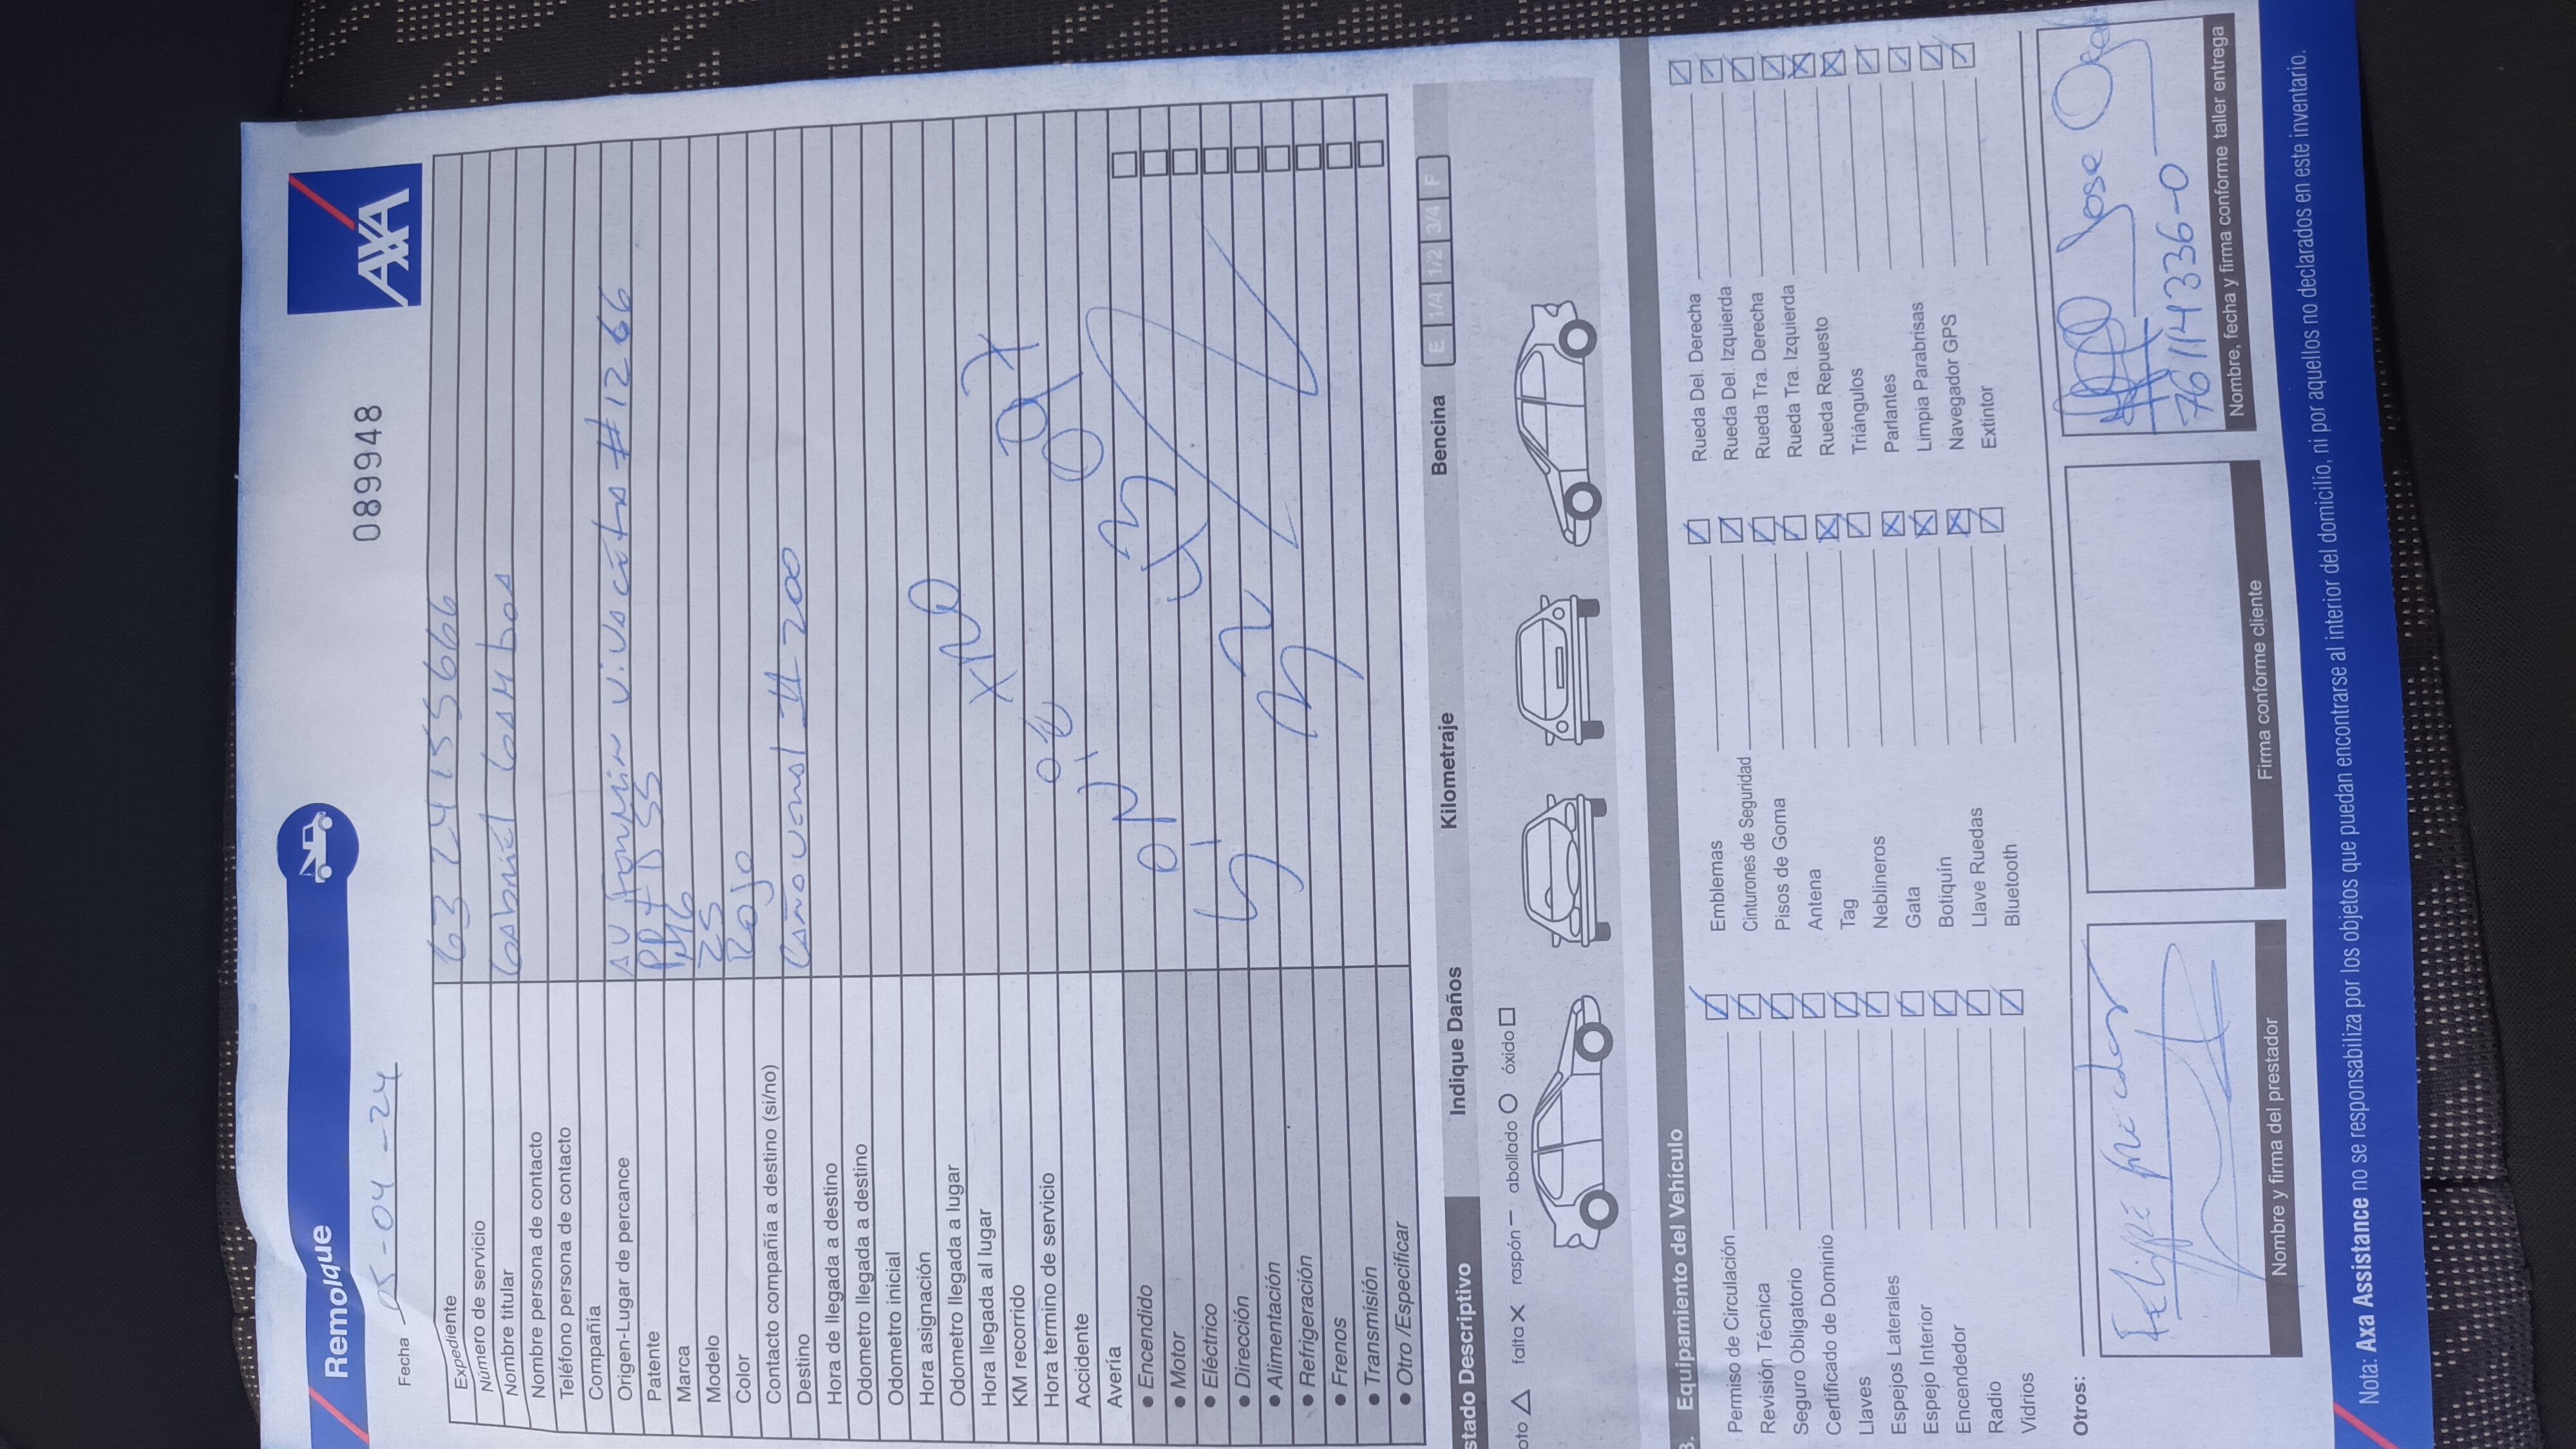 Remolque
AXA
089948
Fecha 05-04-24
Expediente 63 24 155666
Número de servicio
Nombre titular Gabriel
Nombre persona de contacto
Teléfono persona de contacto
Compañía
Origen-Lugar de percance #1266
Patente
Marca
Modelo ZS
Color Rojo
Contacto compañía a destino (si/no)
Destino 11-200
Hora de llegada a destino
Odometro llegada a destino
Odometro inicial
Hora asignación
Odometro llegada a lugar
Hora llegada al lugar
KM recorrido
Hora termino de servicio
Accidente
Avería
• Encendido
• Motor
• Eléctrico
• Dirección
• Alimentación
• Refrigeración
• Frenos
• Transmisión
• Otro /Especificar
stado Descriptivo Indique Daños Kilometraje Bencina E 1/4 1/2 3/4 F
oto △ falta X raspón — abollado ○ óxido □
3. Equipamiento del Vehículo
Permiso de Circulación
Revisión Técnica
Seguro Obligatorio
Certificado de Dominio
Llaves
Espejos Laterales
Espejo Interior
Encendedor
Radio
Vidrios
Emblemas
Cinturones de Seguridad
Pisos de Goma
Antena
Tag
Neblineros
Gata
Botiquín
Llave Ruedas
Bluetooth
Rueda Del. Derecha
Rueda Del. Izquierda
Rueda Tra. Derecha
Rueda Tra. Izquierda
Rueda Repuesto
Triángulos
Parlantes
Limpia Parabrisas
Navegador GPS
Extintor
Otros:
Felipe
Nombre y firma del prestador
Firma conforme cliente
Jose
76114336-0
Nombre, fecha y firma conforme taller entrega
Nota: Axa Assistance no se responsabiliza por los objetos que puedan encontrarse al interior del domicilio, ni por aquellos no declarados en este inventario.